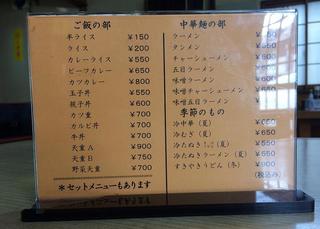 ご飯の部
半ライス ￥150
ライス ￥200
カレーライス ￥550
ビーフカレー ￥650
カツカレー ￥800
玉子丼 ￥550
親子丼 ￥600
カツ重 ￥700
カルビ丼 ￥700
牛丼 ￥700
天重A ￥900
天重B ￥750
野菜天重 ￥700
＊セットメニューもあります
中華麺の部
ラーメン
タンメン
チャーシューメン
五目ラーメン
味噌ラーメン
味噌チャーシューメン
味噌五目ラーメン
季節のもの
冷中華（夏）
冷むぎ（夏）
冷たぬき（夏）
冷たぬきラーメン（夏）
すきやきうどん（冬） ￥900
(税込み)